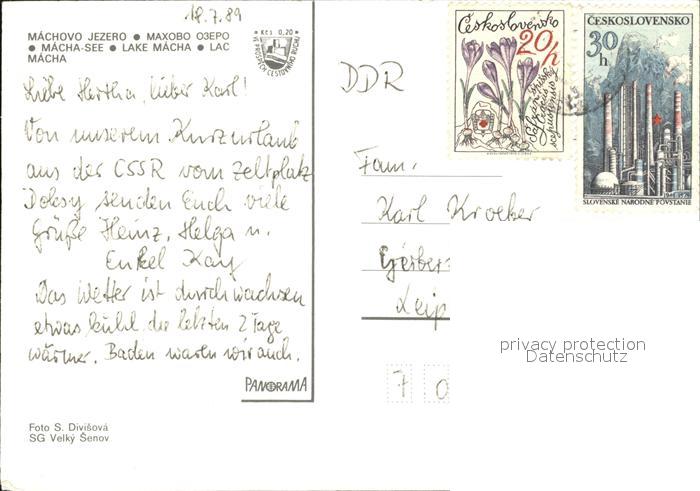 18.7.89
MÁCHOVO JEZERO ● MAXOBO O3EPO
● MÁCHA-SEE ● LAKE MÁCHA ● LAC
MÁCHA
Kčs 0,20
VE PROSPĚCH CESTOVNÍHO RUCHU
Liebe Hertha, lieber Karl!
Von unserem Kurzurlaub
aus der CSSR vom Zeltplatz
Doksy senden Euch viele
Grüße Heinz, Helga u.
Enkel Kay
Das Wetter ist durchwachsen
etwas kühl die letzten 2 Tage
wärmer. Baden waren wir auch.
PANORAMA
Foto S. Divišová
SG Velký Šenov
DDR
Fam.
Karl Kroeber
Gerber
Leip
7 0
Československo
20h
ČESKOSLOVENSKO
30h
SLOVENSKÉ NÁRODNÉ POVSTANIE
privacy protection
Datenschutz